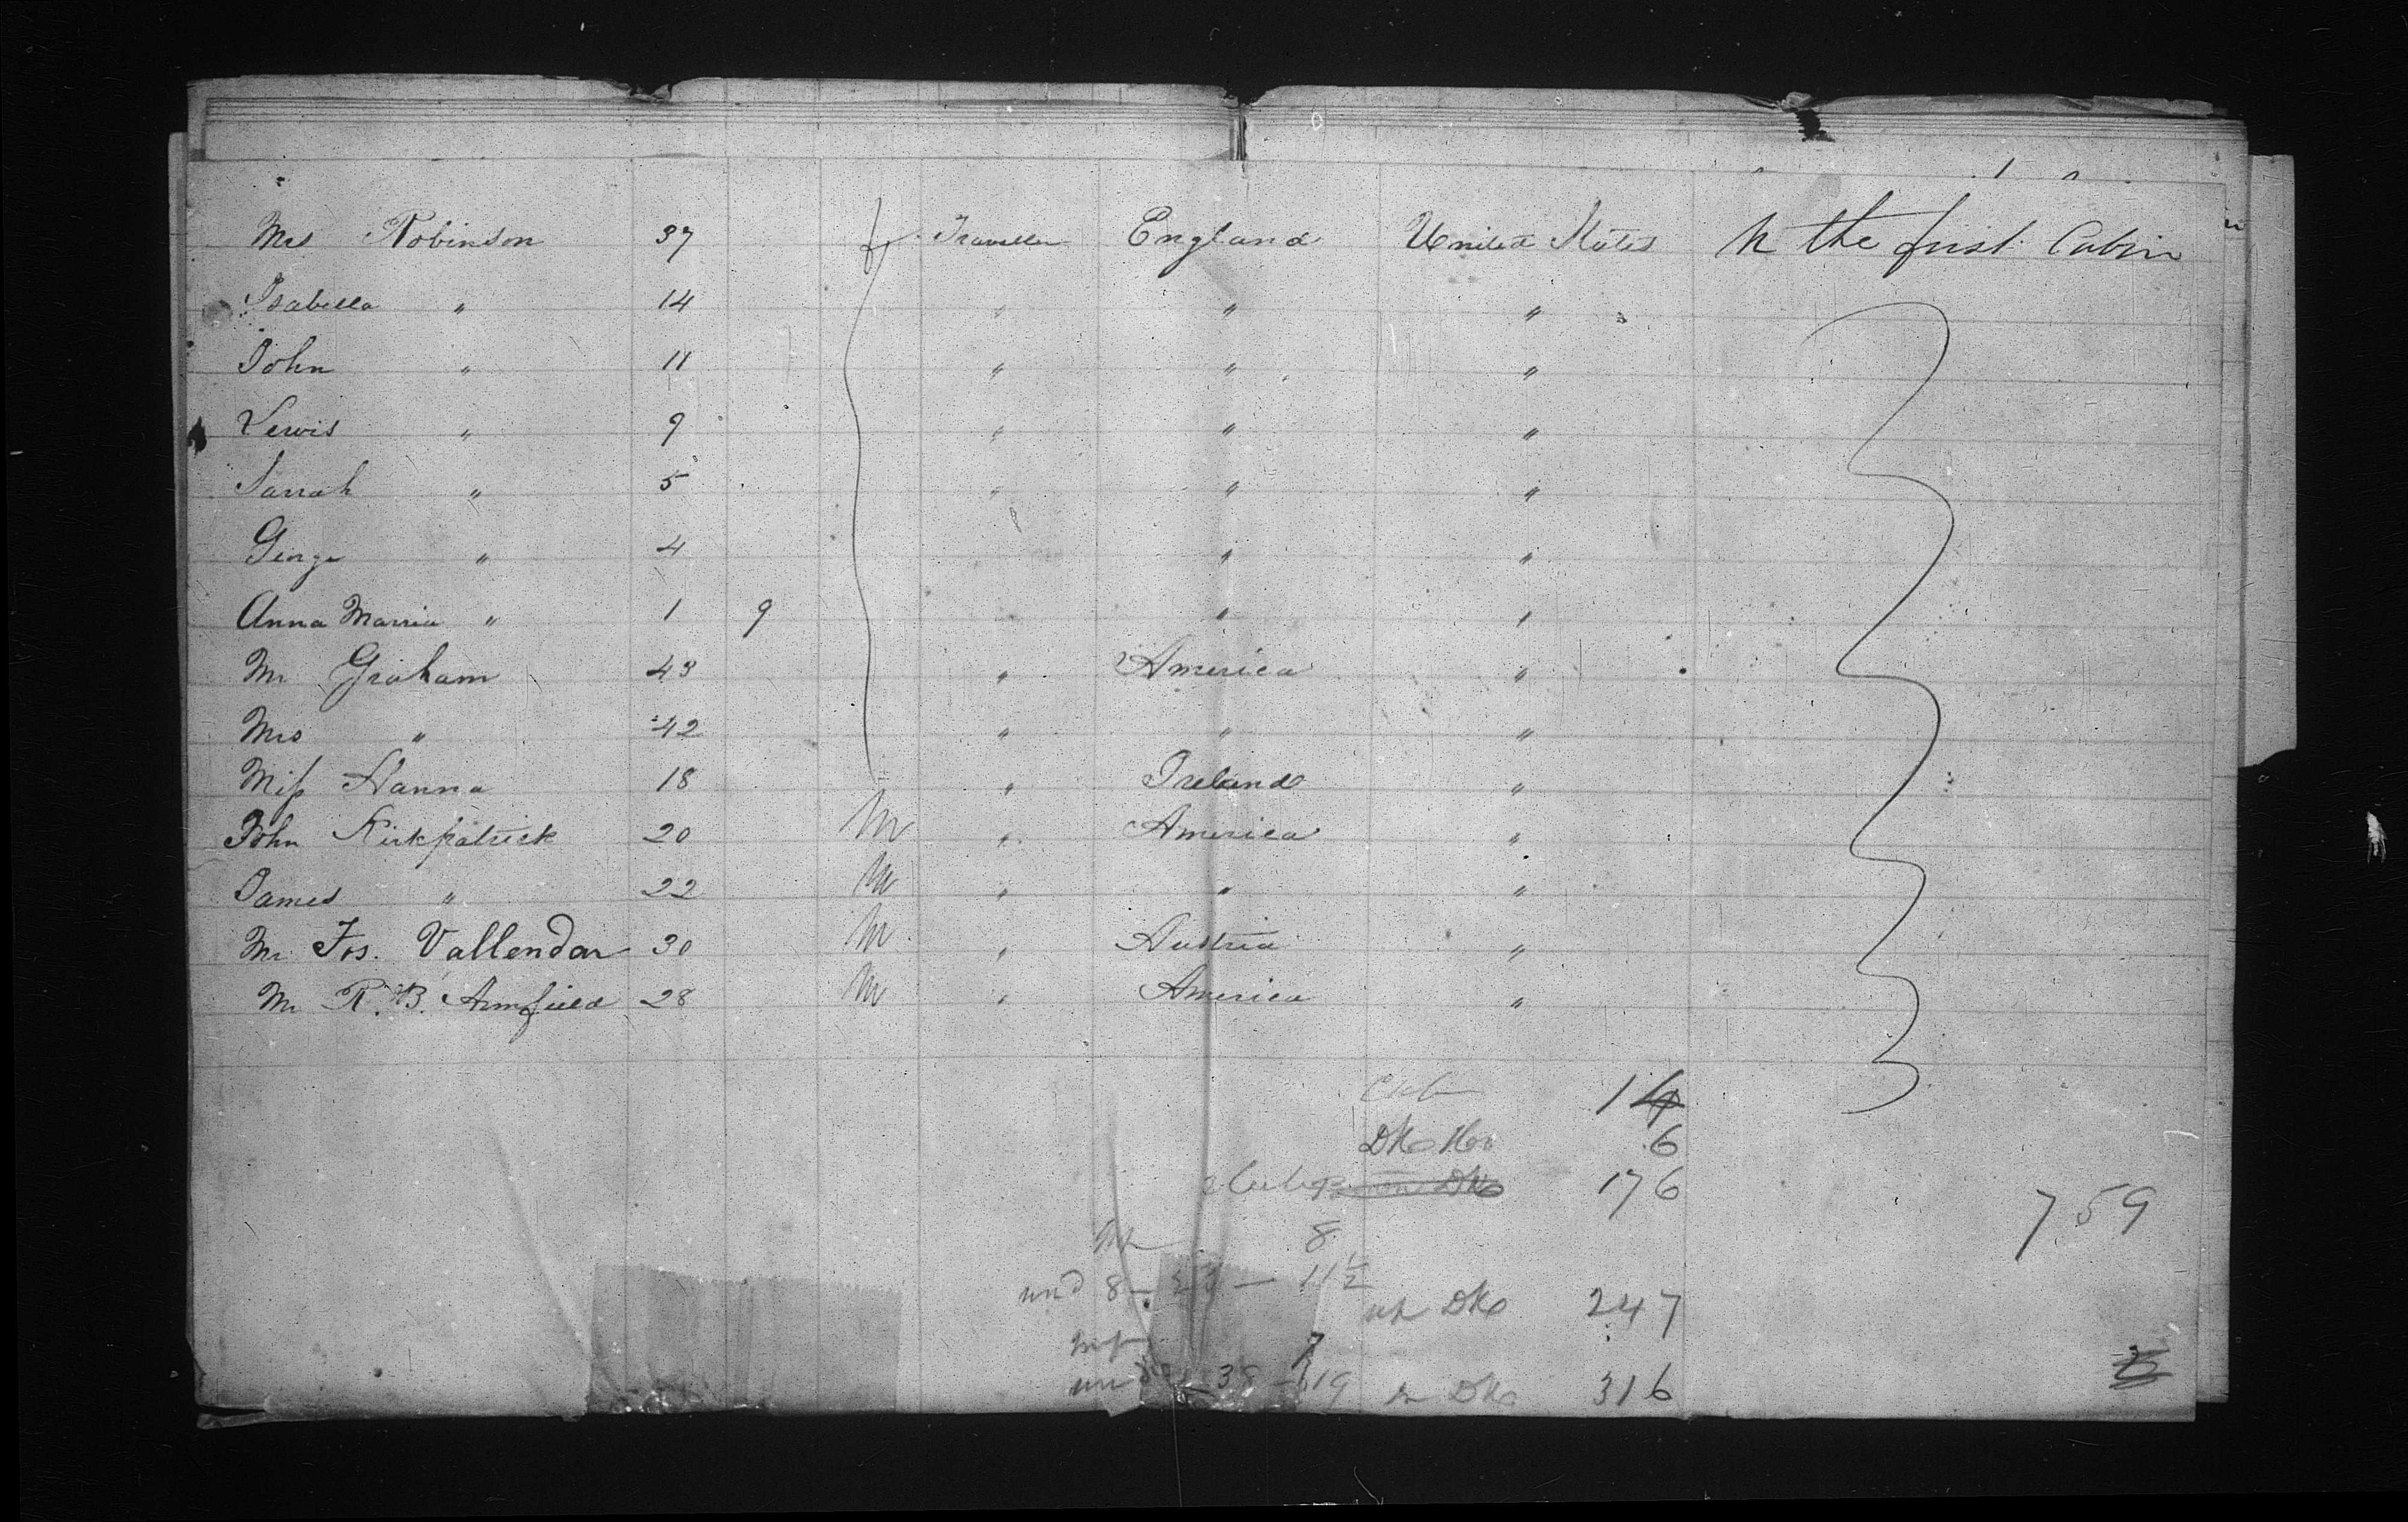 Mrs Robinson 37 f Traveller England United States In the first Cabin
Isabella " 14 " " "
John " 11 " " "
Lewis " 9 " " "
Sarrah " 5 " " "
George " 4 " "
Anna Marria " 1 9 " " "
Mr Graham 43 " America "
Mrs " 42 " " "
Miss Hanna 18 " Ireland "
John Kirkpatrick 20 M " America "
James " 22 M " " "
Mr Jos. Vallendar 30 M " Austria "
Mr R. B. Armfield 28 M " America "
14
6
176
759
8
und 8 — — 11½
247
7
38 — 19
316